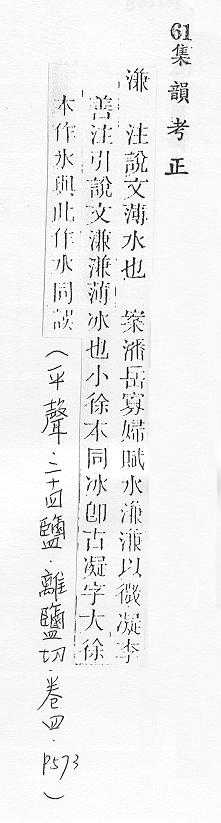 61集韻考正
溓 注說文薄水也 案潘岳寡婦賦水溓溓以微凝李
善注引說文溓溓薄冰也小徐本同冰卽古凝字大徐
本作氷與此作水同誤
(平聲.二十四鹽.離鹽切.卷四.P573)